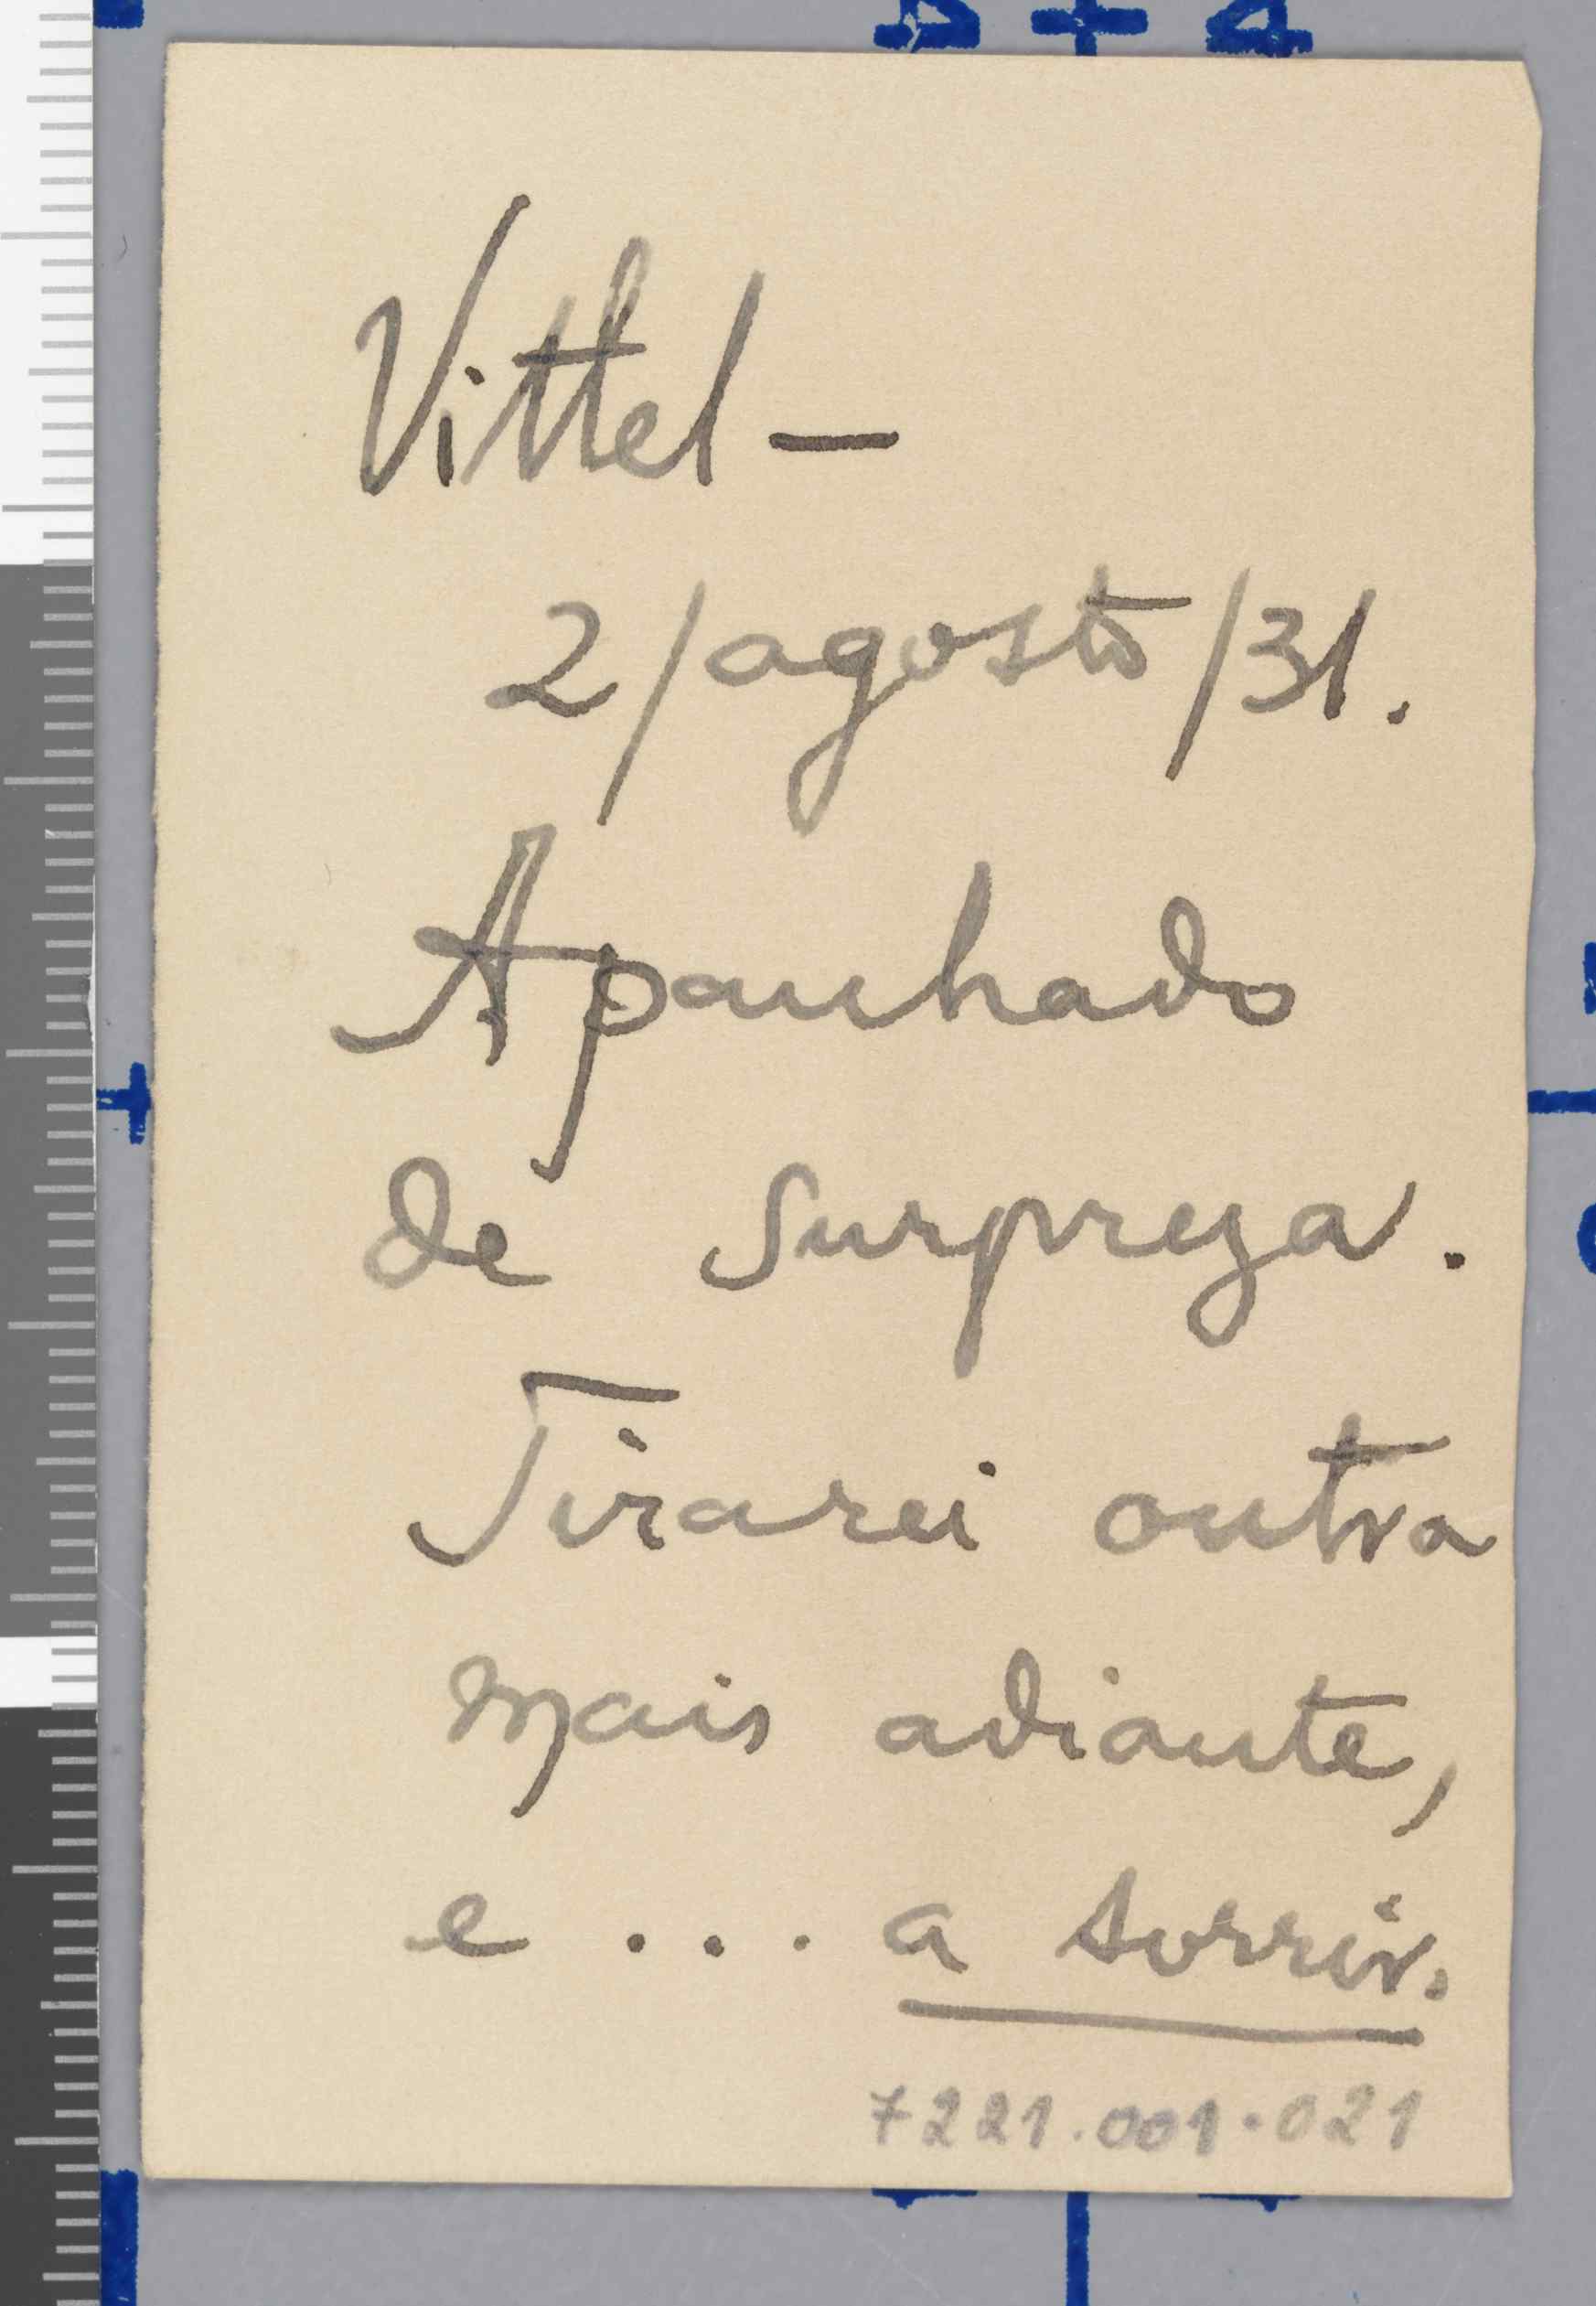 Vittel —
2/agosto/31.
Apanhado
de surpreza.
Tirarei outra
mais adiante,
e ... a sorrir.
7221.001.021